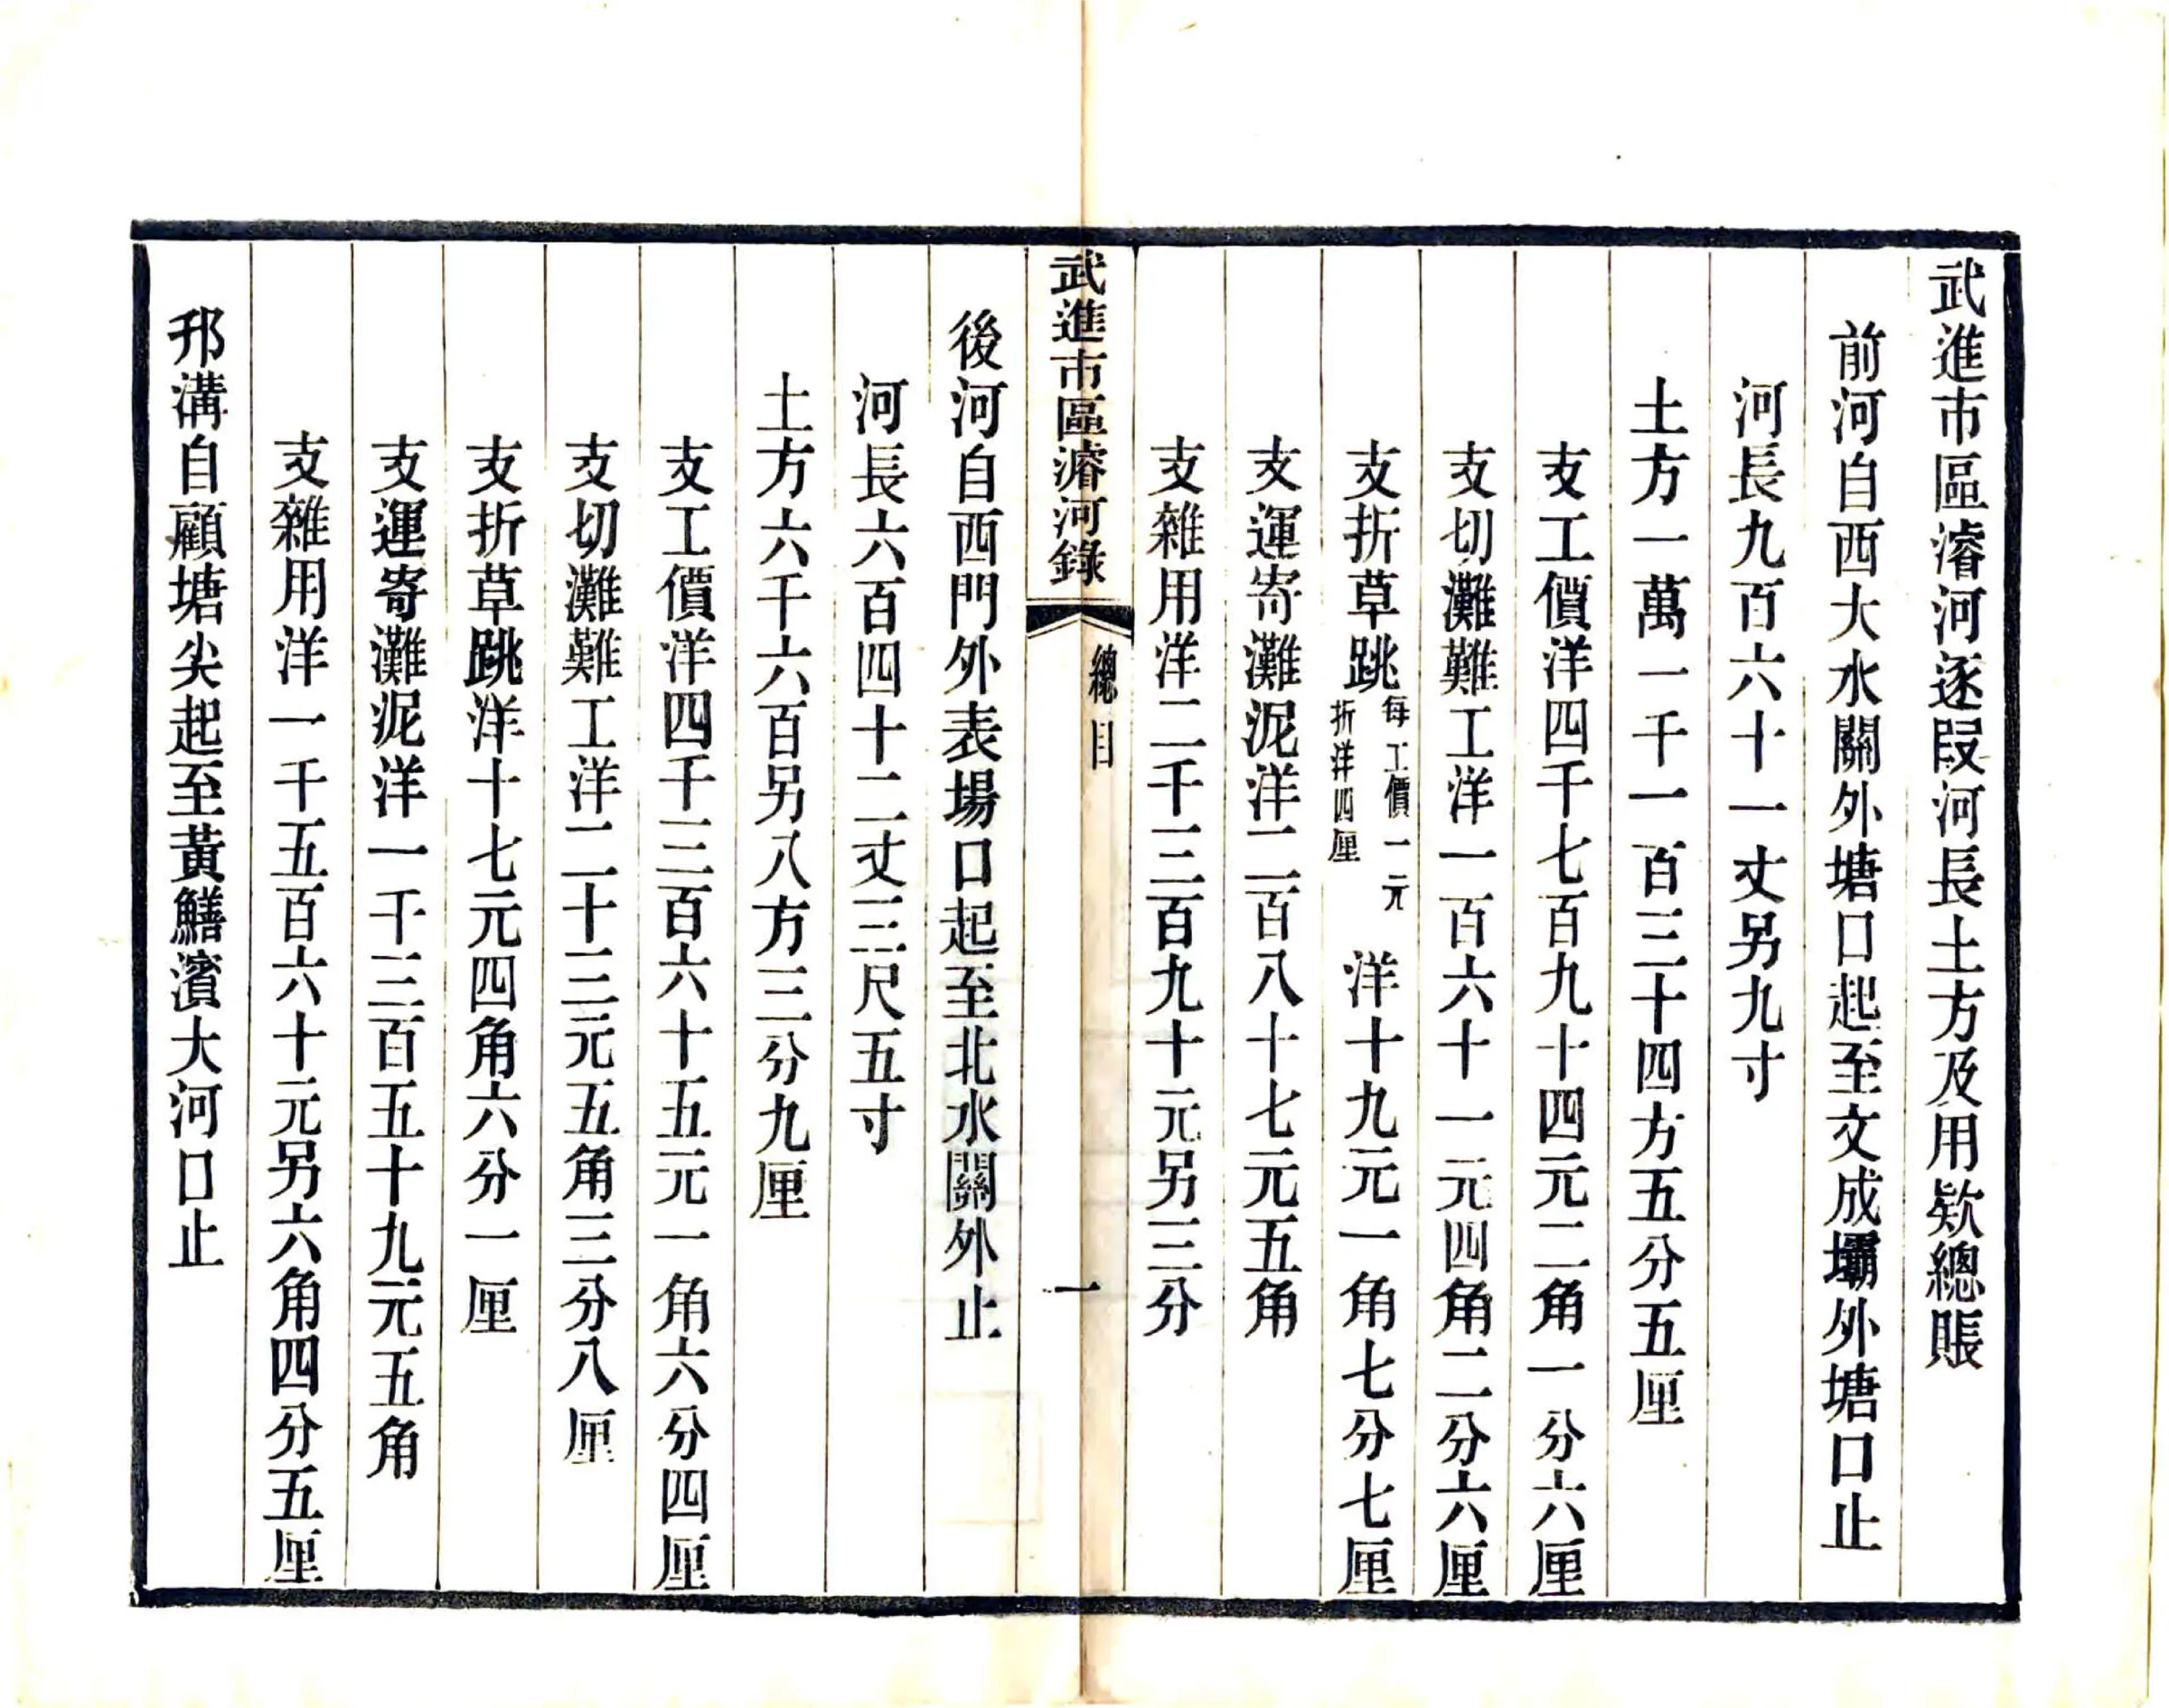 武進市區濬河逐段河長土方及用欵總賬
前河自西大水關外塘口起至文成壩外塘口止
河長九百六十一丈另九寸
土方一萬一千一百三十四方五分五厘
支工價洋四千七百九十四元二角一分六厘
支切灘難工洋一百六十一元四角二分六厘
支折草跳每工價一元折洋四厘 洋十九元一角七分七厘
支運寄灘泥洋二百八十七元五角
支雜用洋二千三百九十元另三分
武進市區濬河錄 總目 一
後河自西門外表場口起至北水關外止
河長六百四十二丈三尺五寸
土方六千六百另八方三分九厘
支工價洋四千三百六十五元一角六分四厘
支切灘難工洋二十三元五角三分八厘
支折草跳洋十七元四角六分一厘
支運寄灘泥洋一千三百五十九元五角
支雜用洋一千五百六十元另六角四分五厘
邗溝自顧塘尖起至黃鱔濱大河口止